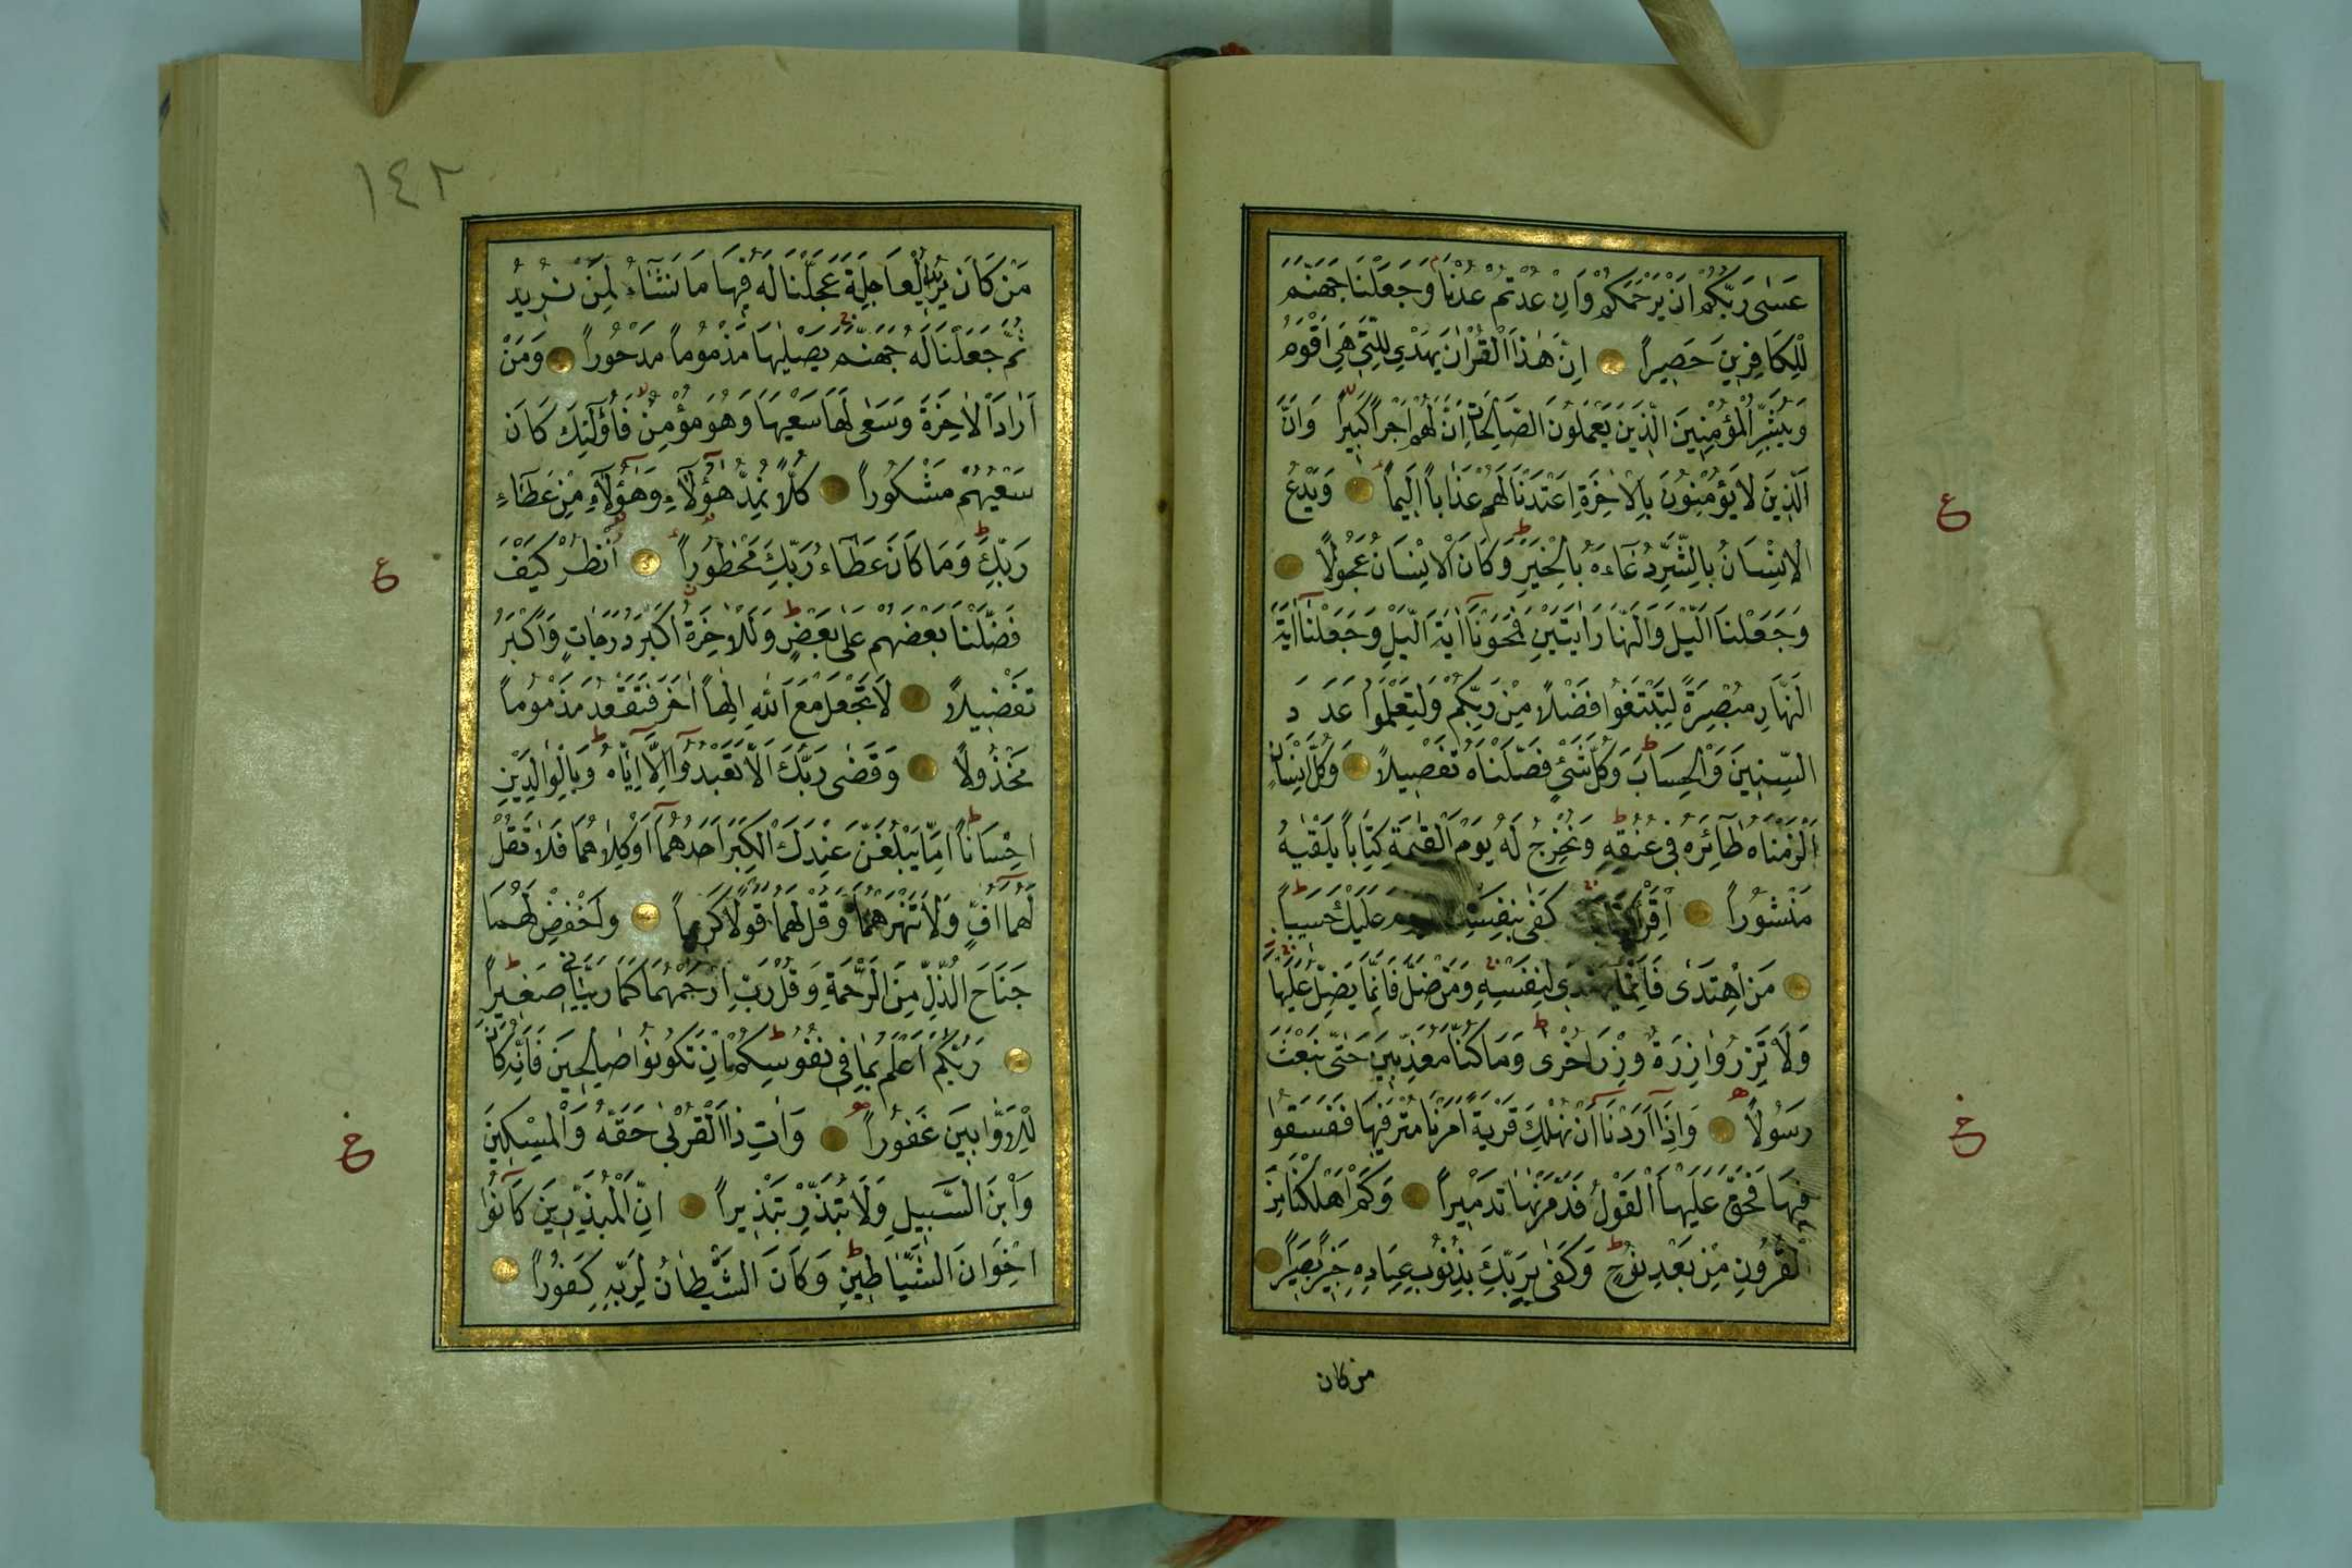 عَسٰى رَبُّكُمْ اَنْ يَرْحَمَكُمْ وَاِنْ عُدْتُمْ عُدْنَا وَجَعَلْنَا جَهَنَّمَ
لِلْكَافِرِينَ حَصِيراً اِنَّ هٰذَا الْقُرْاٰنَ يَهْدِي لِلَّتِي هِيَ اَقْوَمُ
وَيُبَشِّرُ الْمُؤْمِنِينَ الَّذِينَ يَعْمَلُونَ الصَّالِحَاتِ اَنَّ لَهُمْ اَجْراً كَبِيراً وَاَنَّ
الَّذِينَ لَا يُؤْمِنُونَ بِالْاٰخِرَةِ اَعْتَدْنَا لَهُمْ عَذَاباً اَلِيماً وَيَدْعُ
الْاِنْسَانُ بِالشَّرِّ دُعَاءَهُ بِالْخَيْرِ وَكَانَ الْاِنْسَانُ عَجُولاً
وَجَعَلْنَا الَّيْلَ وَالنَّهَارَ اٰيَتَيْنِ فَمَحَوْنَا اٰيَةَ الَّيْلِ وَجَعَلْنَا اٰيَةَ
النَّهَارِ مُبْصِرَةً لِتَبْتَغُوا فَضْلاً مِنْ رَبِّكُمْ وَلِتَعْلَمُوا عَدَدَ
السِّنِينَ وَالْحِسَابَ وَكُلَّ شَيْءٍ فَصَّلْنَاهُ تَفْصِيلاً وَكُلَّ اِنْسَانٍ
اَلْزَمْنَاهُ طَآئِرَهُ فِي عُنُقِهِ وَنُخْرِجُ لَهُ يَوْمَ الْقِيٰمَةِ كِتَاباً يَلْقٰيهُ
مَنْشُوراً اِقْرَأْ كِتَابَكَ كَفٰى بِنَفْسِكَ الْيَوْمَ عَلَيْكَ حَسِيباً
مَنِ اهْتَدٰى فَاِنَّمَا يَهْتَدِي لِنَفْسِهِ وَمَنْ ضَلَّ فَاِنَّمَا يَضِلُّ عَلَيْهَا
وَلَا تَزِرُ وَازِرَةٌ وِزْرَ اُخْرٰى وَمَا كُنَّا مُعَذِّبِينَ حَتّٰى نَبْعَثَ
رَسُولاً وَاِذَا اَرَدْنَا اَنْ نُهْلِكَ قَرْيَةً اَمَرْنَا مُتْرَفِيهَا فَفَسَقُوا
فِيهَا فَحَقَّ عَلَيْهَا الْقَوْلُ فَدَمَّرْنٰهَا تَدْمِيراً وَكَمْ اَهْلَكْنَا مِنَ
الْقُرُونِ مِنْ بَعْدِ نُوحٍ وَكَفٰى بِرَبِّكَ بِذُنُوبِ عِبَادِهِ خَبِيراً بَصِيراً
من كان
ع
١٤٢
مَنْ كَانَ يُرِيدُ الْعَاجِلَةَ عَجَّلْنَا لَهُ فِيهَا مَا نَشَآءُ لِمَنْ نُرِيدُ
ثُمَّ جَعَلْنَا لَهُ جَهَنَّمَ يَصْلٰيهَا مَذْمُوماً مَدْحُوراً وَمَنْ
اَرَادَ الْاٰخِرَةَ وَسَعٰى لَهَا سَعْيَهَا وَهُوَ مُؤْمِنٌ فَاُولٰٓئِكَ كَانَ
سَعْيُهُمْ مَشْكُوراً كُلًّا نُمِدُّ هٰؤُلَآءِ وَهٰؤُلَآءِ مِنْ عَطَآءِ
رَبِّكَ وَمَا كَانَ عَطَآءُ رَبِّكَ مَحْظُوراً اُنْظُرْ كَيْفَ
فَضَّلْنَا بَعْضَهُمْ عَلٰى بَعْضٍ وَلَلْاٰخِرَةُ اَكْبَرُ دَرَجَاتٍ وَاَكْبَرُ
تَفْضِيلاً لَا تَجْعَلْ مَعَ اللّٰهِ اِلٰهاً اٰخَرَ فَتَقْعُدَ مَذْمُوماً
مَخْذُولاً وَقَضٰى رَبُّكَ اَلَّا تَعْبُدُوٓا اِلَّٓا اِيَّاهُ وَبِالْوَالِدَيْنِ
اِحْسَاناً اِمَّا يَبْلُغَنَّ عِنْدَكَ الْكِبَرَ اَحَدُهُمَآ اَوْ كِلَاهُمَا فَلَا تَقُلْ
لَهُمَآ اُفٍّ وَلَا تَنْهَرْهُمَا وَقُلْ لَهُمَا قَوْلاً كَرِيماً وَاخْفِضْ لَهُمَا
جَنَاحَ الذُّلِّ مِنَ الرَّحْمَةِ وَقُلْ رَبِّ ارْحَمْهُمَا كَمَا رَبَّيَانِي صَغِيراً
رَبُّكُمْ اَعْلَمُ بِمَا فِي نُفُوسِكُمْ اِنْ تَكُونُوا صَالِحِينَ فَاِنَّهُ كَانَ
لِلْاَوَّابِينَ غَفُوراً وَاٰتِ ذَا الْقُرْبٰى حَقَّهُ وَالْمِسْكِينَ
وَابْنَ السَّبِيلِ وَلَا تُبَذِّرْ تَبْذِيراً اِنَّ الْمُبَذِّرِينَ كَانُوا
اِخْوَانَ الشَّيَاطِينِ وَكَانَ الشَّيْطَانُ لِرَبِّهِ كَفُوراً
ع